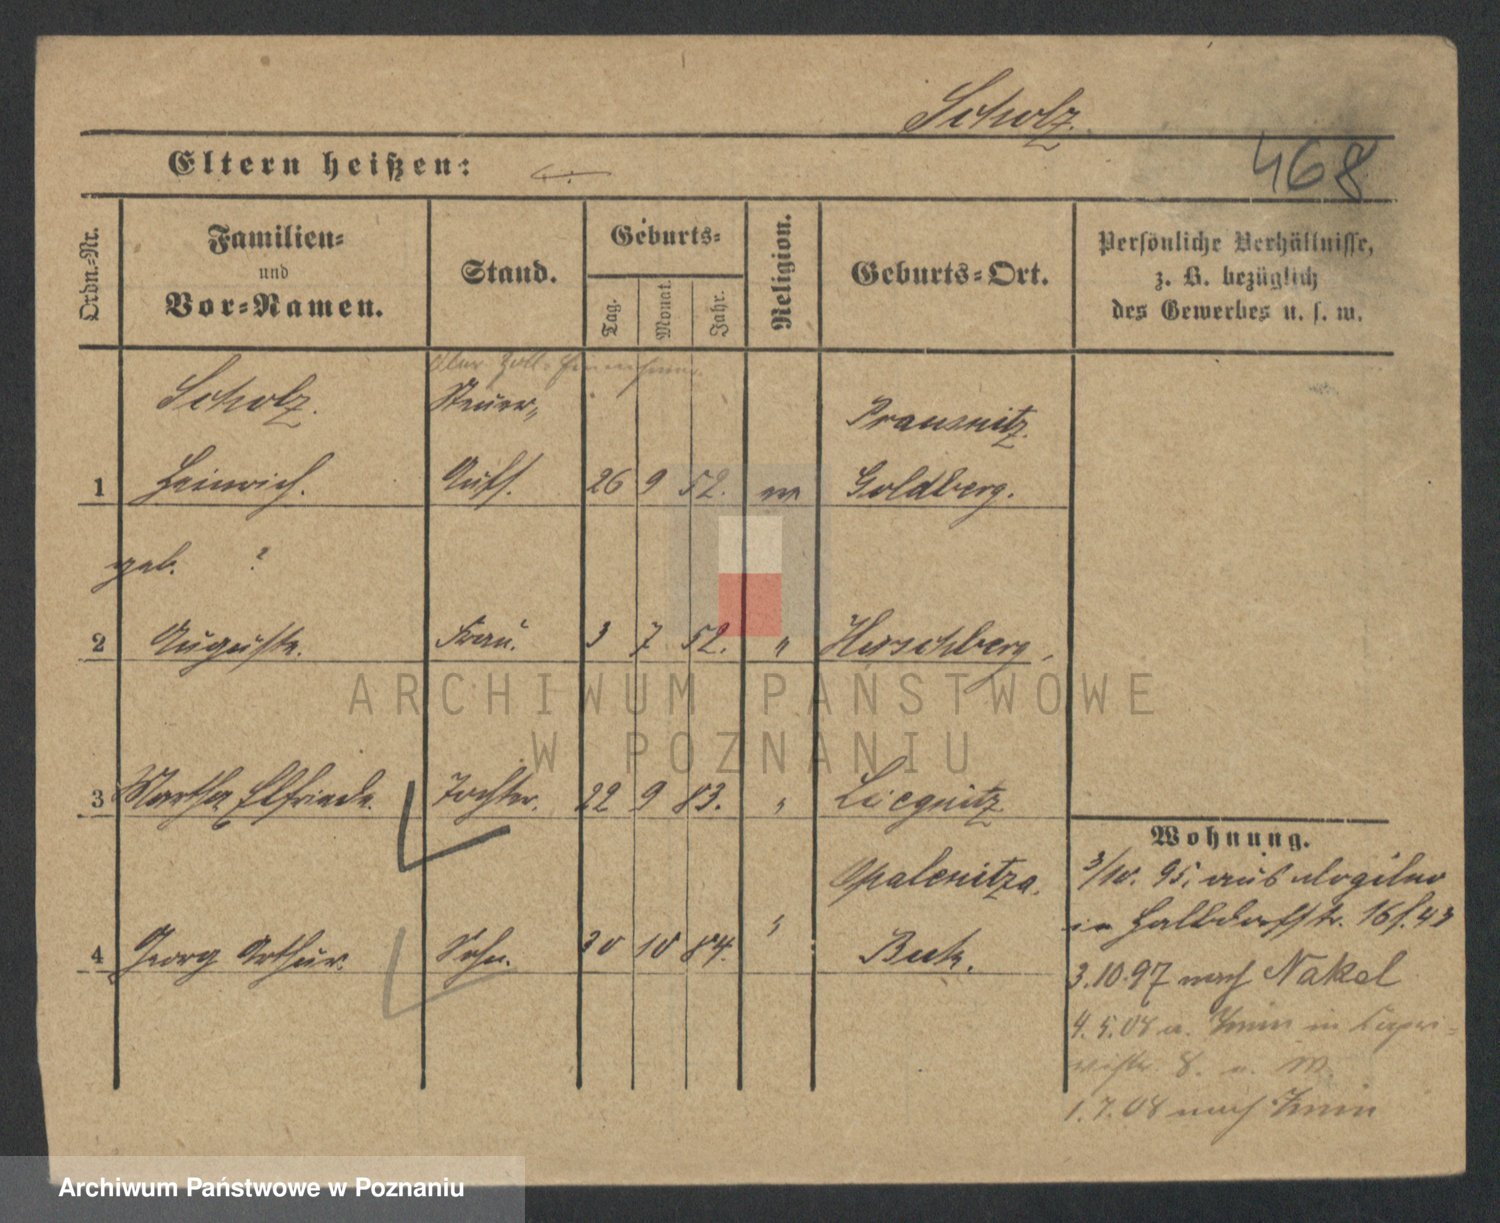 Scholz.
468
Eltern heißen:
Ordn.-Nr.
Familien-
und
Vor-Namen.
Stand.
Geburts-
Tag.
Monat.
Jahr.
Religion.
Geburts-Ort.
Persönliche Verhältnisse,
z. B. bezüglich
des Gewerbes u. s. w.
Ober
Scholz. Steuer„ Prausnitz.
1 Heinrich. Auff. 26 9 52. Goldberg.
geb. ?
2 Auguste. Frau. 3 7 52. " Hirschberg,
ARCHIWUM PAŃSTWOWE
W POZNANIU
3 Martha Elfriede. Tochter. 22 9 83. " Liegnitz.
Opalenitza.
4 Georg Arthur. Sohn. 30 10 84. " Buk.
Wohnung.
3/10. 95. aus Mogilno
in Halbdorfstr. 16 43
3.10.97 nach Nakel
4.5.08 a. Znin in Capri-
vistr. 8.
1.7.08 nach Znin
Archiwum Państwowe w Poznaniu